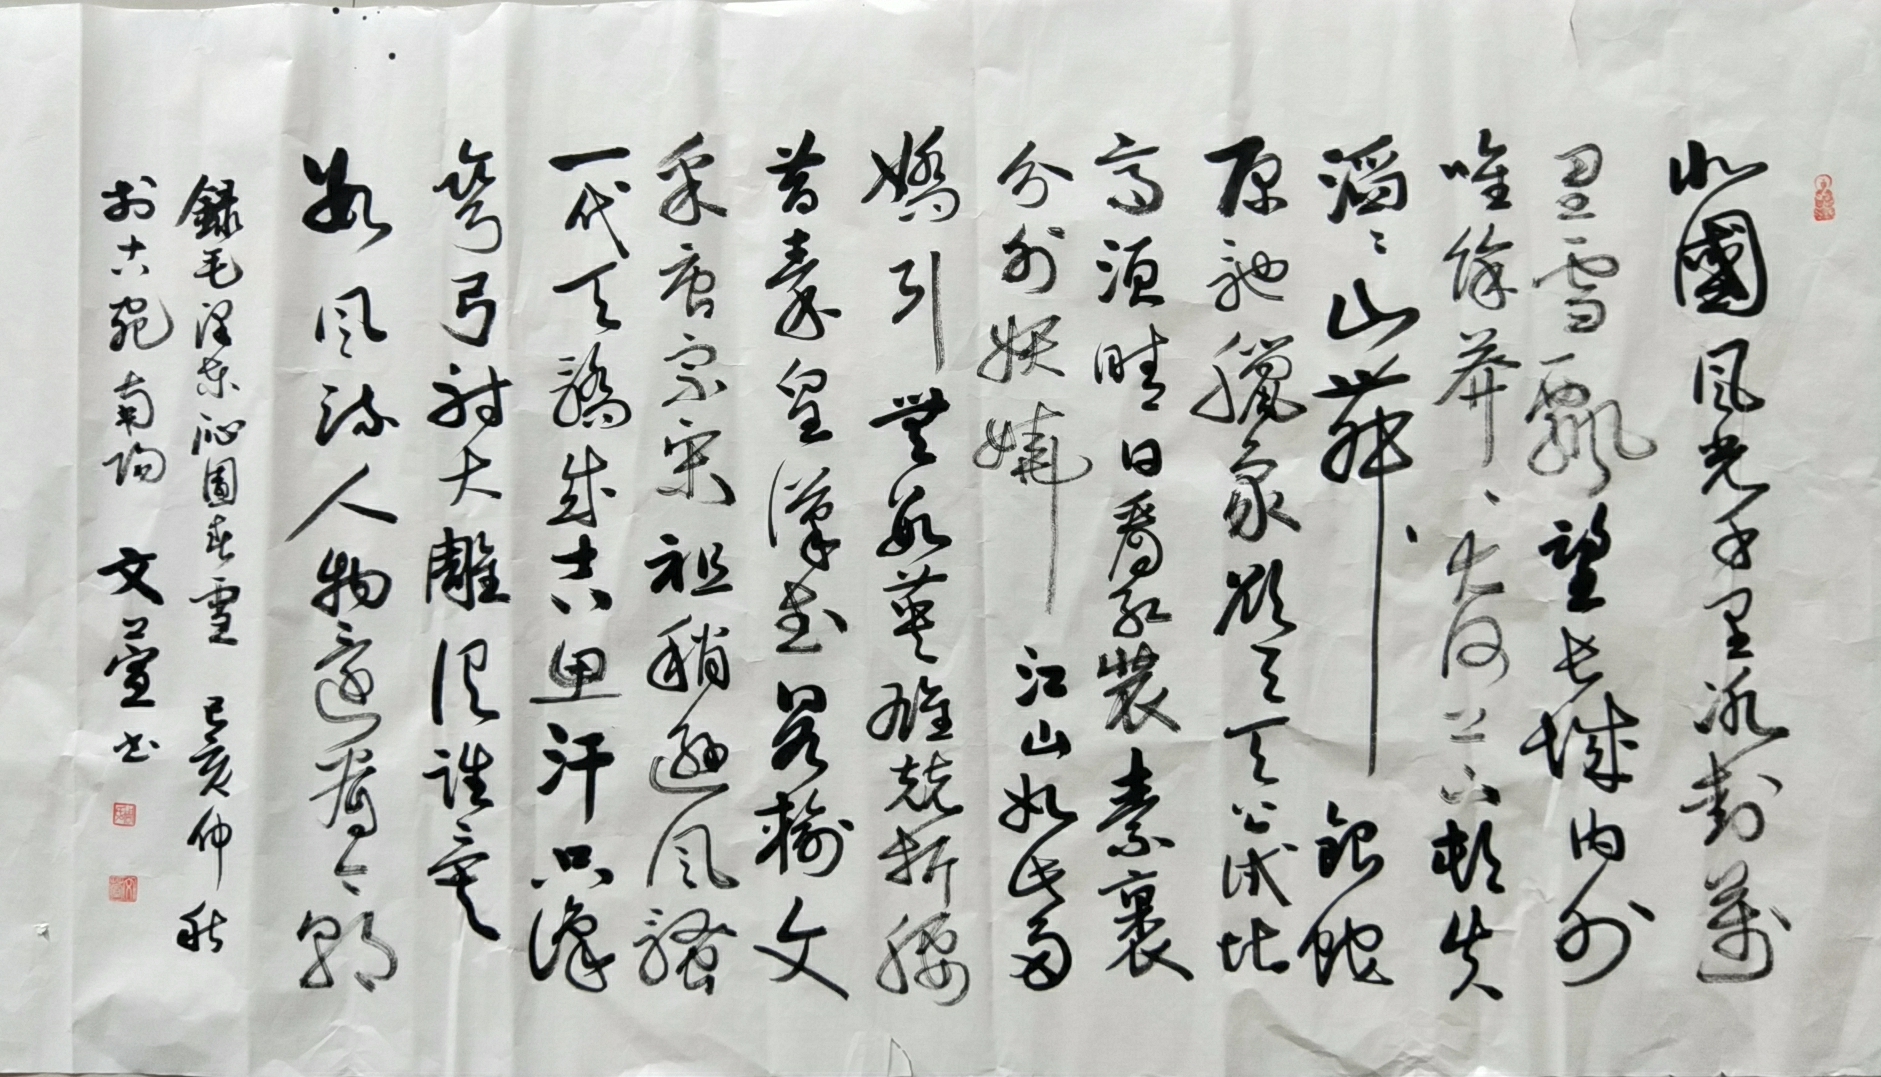 北國風光千里冰封萬
里雪飄望長城內外
唯餘莽、大河上下頓失
滔ミ山舞銀蛇
原馳臘象欲与天公試比
高須晴日看紅裝素裹
分外妖嬈江山如此多
嬌引無數英雄競折腰
昔秦皇漢武畧輸文
采唐宗宋祖稍遜風騷
一代天驕成吉思汗只識
彎弓射大雕俱往矣
數風流人物還看今朝
錄毛澤東沁園春雪 己亥仲秋
於古宛南陽 文萱书